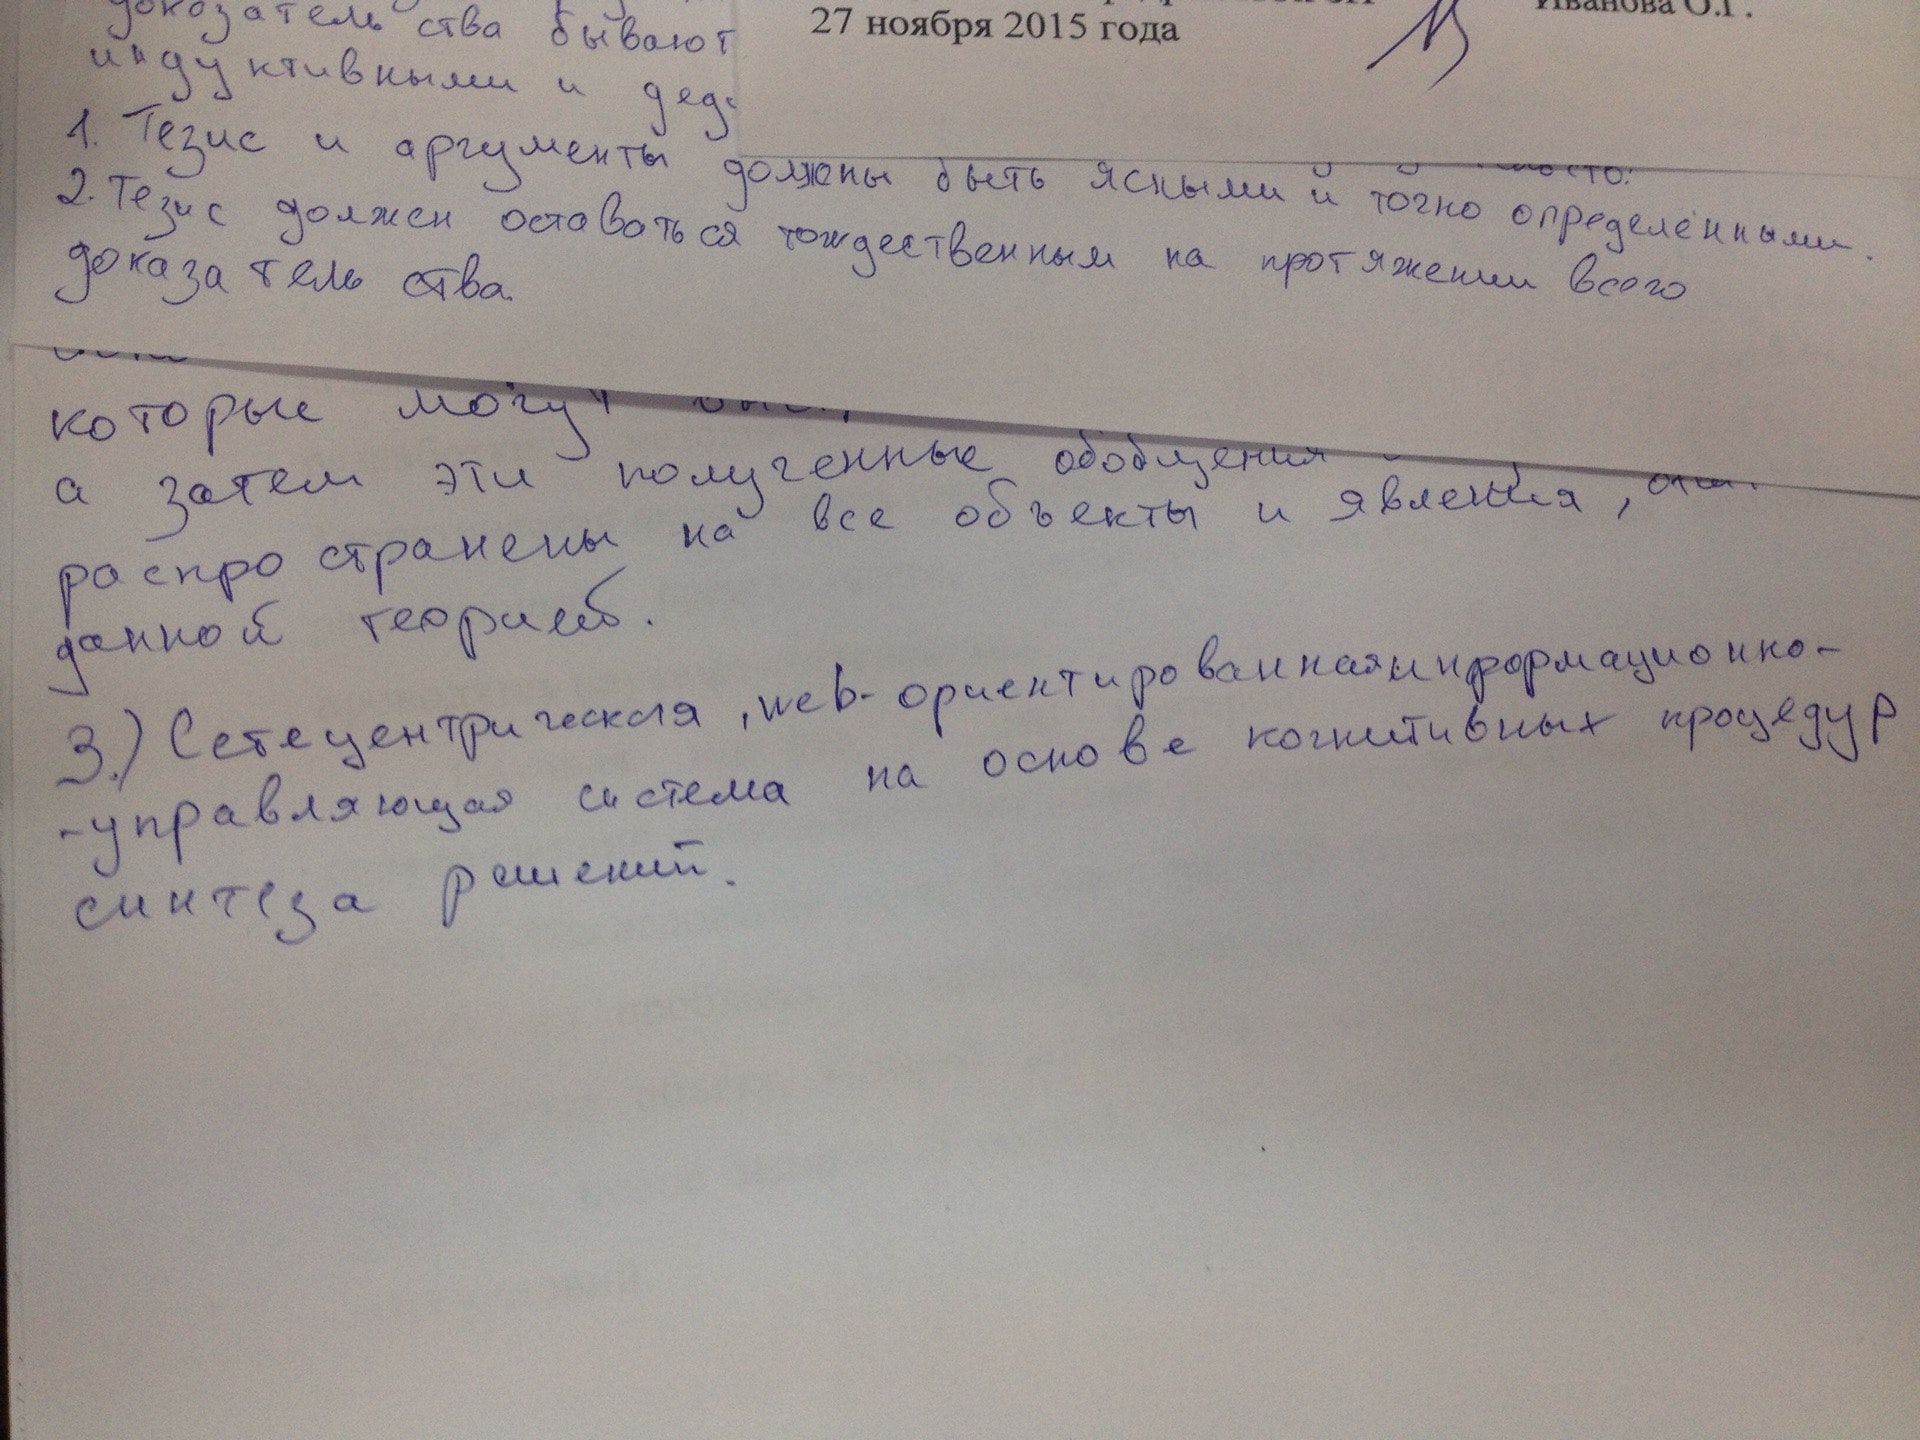 Иванова О.Г.
27 ноября 2015 года
доказательства бывают
индуктивными и
1. Тезис и аргументы должны быть ясными и точно определёнными.
2. Тезис должен оставаться тождественным на протяжении всего
доказательства.
которые могут
а затем эти полученные обобщения
распространены на все объекты и явления,
данной теорией.
3.) Сетецентрическая, web-ориентированная информационно-
-управляющая система на основе когнитивных процедур
синтеза решений.